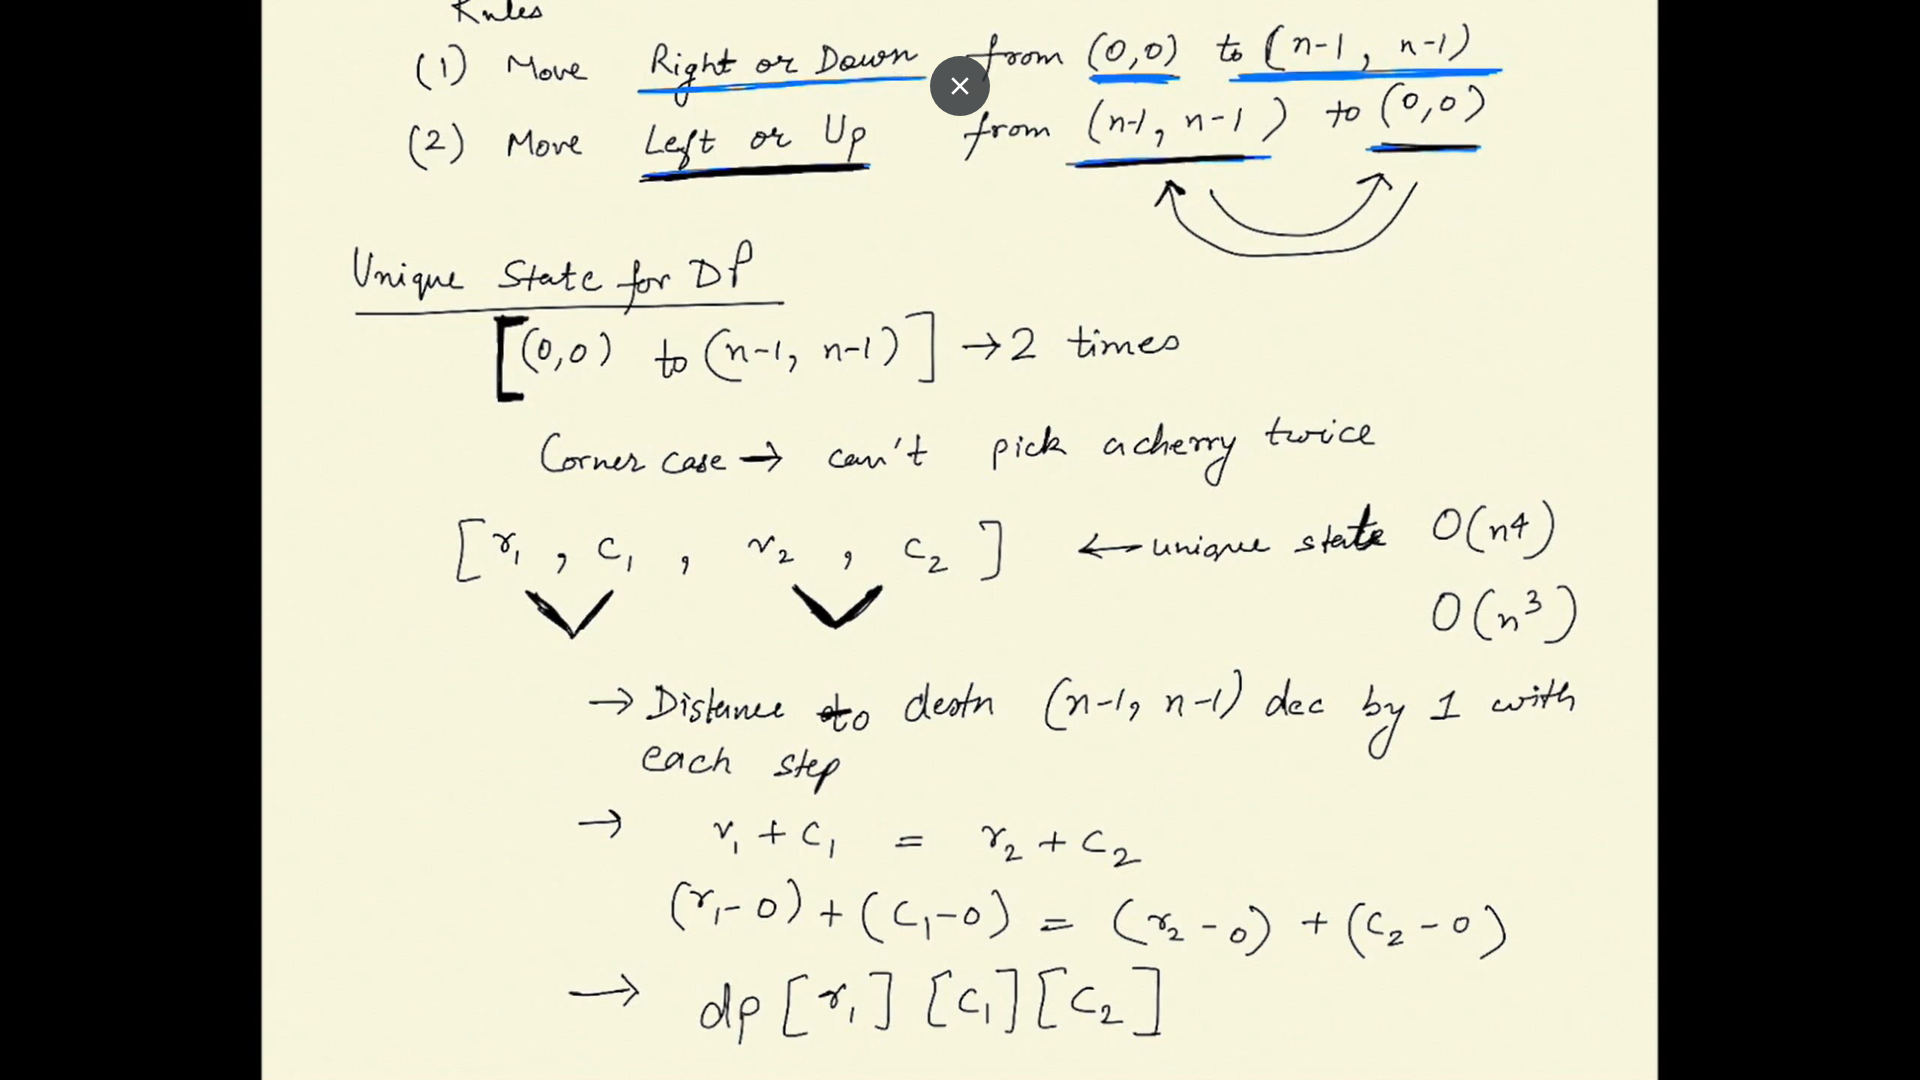 Rules
(1) Move Right or Down from (0,0) to (n-1, n-1)
(2) Move Left or Up from (n-1, n-1) to (0,0)
Unique State for DP
[(0,0) to (n-1, n-1)] → 2 times
Corner case → can't pick a cherry twice
[r₁, c₁, r₂, c₂] ← unique state O(n⁴)
O(n³)
→ Distance to destn (n-1, n-1) dec by 1 with
each step
→ r₁ + c₁ = r₂ + c₂
(r₁-0) + (c₁-0) = (r₂-0) + (c₂-0)
→ dp[r₁][c₁][c₂]